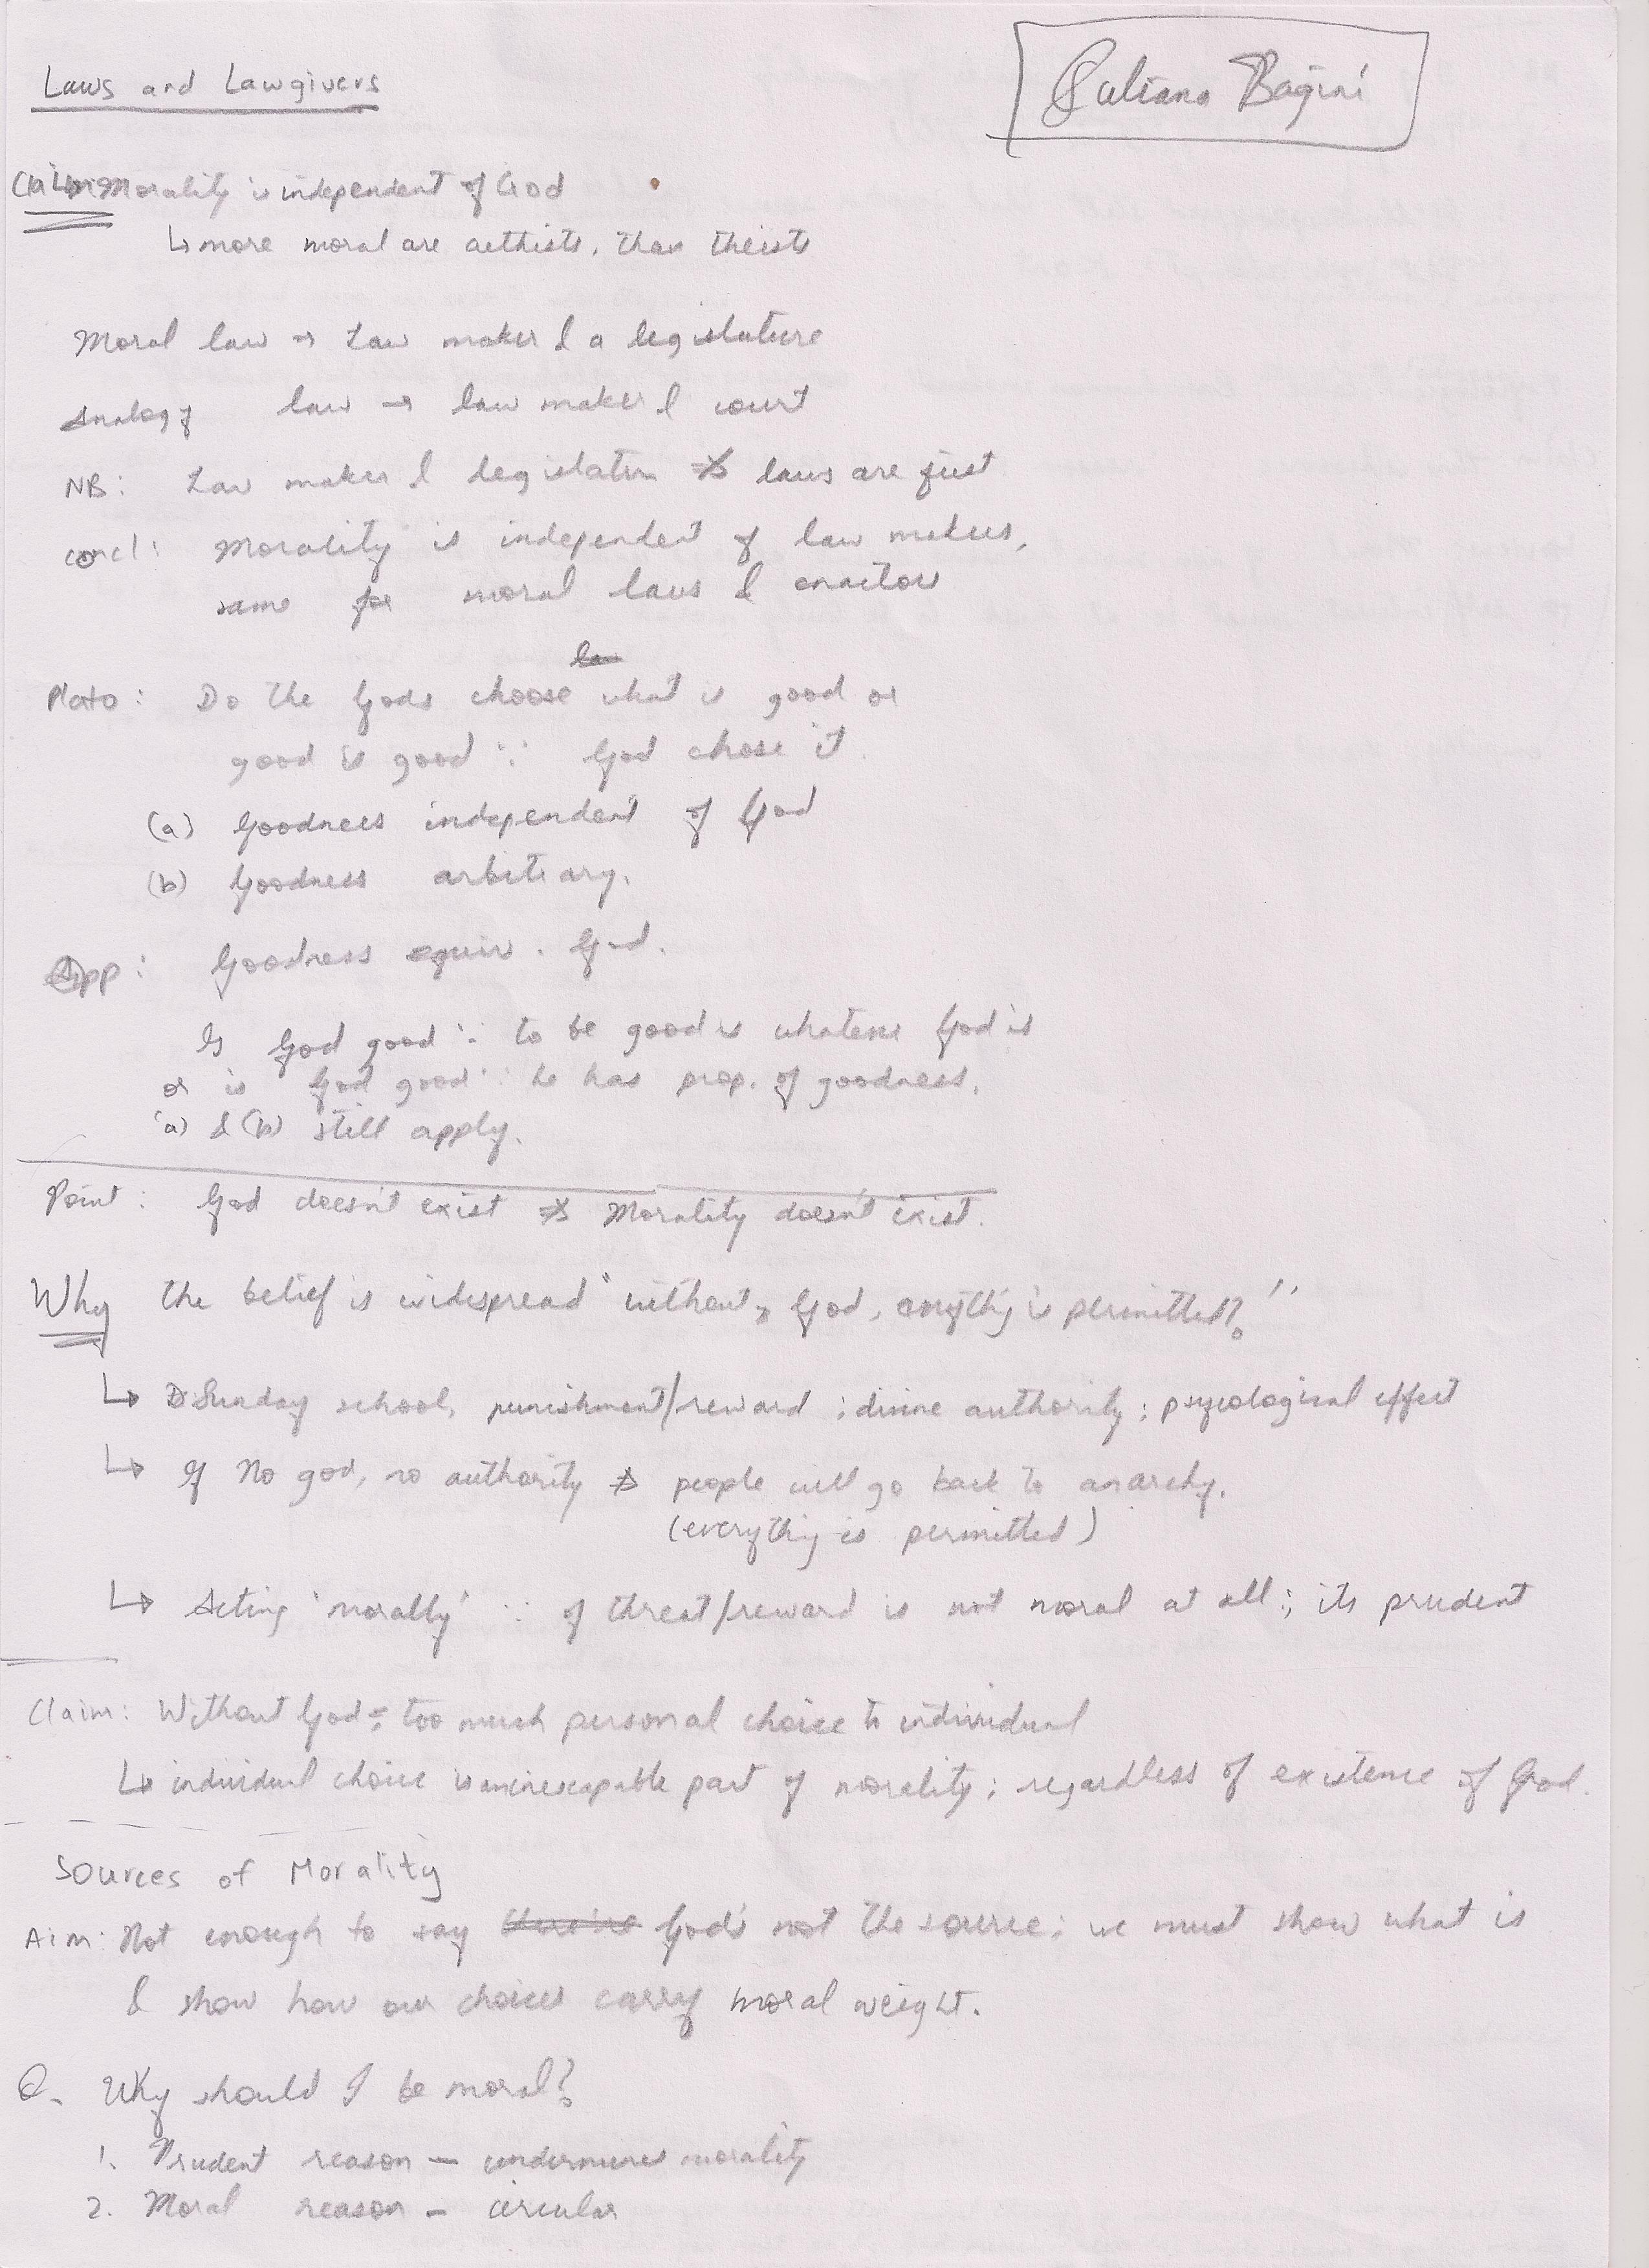 Laws and Lawgivers
Juliano Bagini
Claim: Morality is independent of God
↳ more moral are aethists, than theists
Moral law → Law maker & a legislature
Analogy law → law maker & court
NB: Law maker & legislature ⇏ laws are just
concl: Morality is independent of law makers,
same for moral laws & enactors
Plato: Do the Gods choose what is good or
good is good ∵ God chose it.
(a) Goodness independent of God
(b) Goodness arbitrary.
Opp: Goodness equiv. God.
Is God good ∵ to be good is whatever God is
or is God good ∵ he has prop. of goodness.
(a) & (b) still apply.
Point: God doesn't exist ⇏ Morality doesn't exist.
Why the belief is widespread "without God, anything is permitted?"
↳ Sunday school, punishment/reward ; divine authority ; psycological effect
↳ If No god, no authority ⇏ people will go back to anarchy.
(everything is permitted)
↳ Acting 'morally' ∵ of threat/reward is not moral at all ; its prudent
Claim: Without God = too much personal choice to individual
↳ individual choice is an inescapable part of morality ; regardless of existence of God.
Sources of Morality
Aim: Not enough to say God's not the source ; we must show what is
& show how our choices carry moral weight.
Q. Why should I be moral?
1. Prudent reason — undermines morality
2. Moral reason — circular